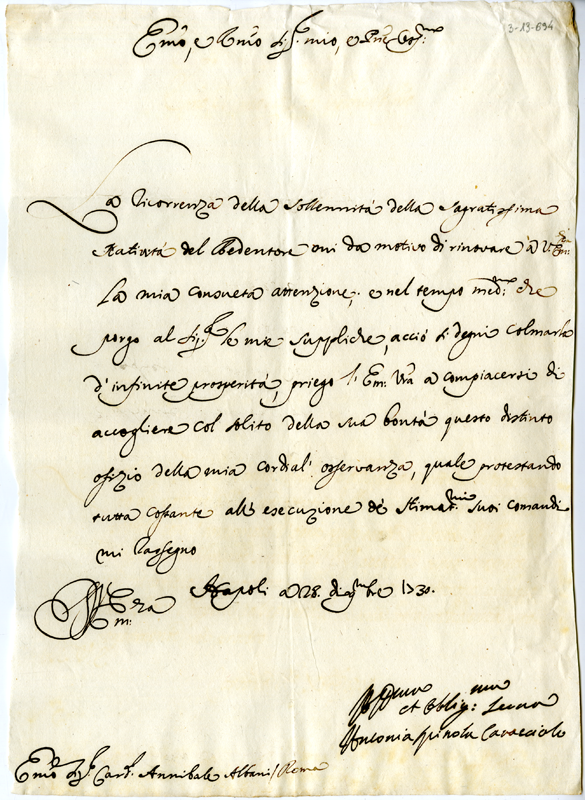 3-13-694
Emo, e Rmo Sig.r mio, e Pne Col.mo
La Ricorrenza della Sollennità della Sagratissima
Natività del Redentore mi da motivo di rinovare à V.
La mia consueta attenzione; e nel tempo med.mo che
porgo al Sig.re le mie suppliche, acciò si degni Colmarla
d'infinite prosperità, priego l'Em: Vra a compiacersi di
accogliere Col solito della sua bontà questo distinto
ofizio della mia cordial' osservanza, quale protestando
tutta Costante all'esecuzione de Stimat.mi suoi comandi
mi Rassegno
Napoli a 28. digmbre 1730.
Em: Vra
et Oblig:ma Serva
Antonia Spinola Caracciolo
Emo Sig.r Card. Annibale Albani / Roma